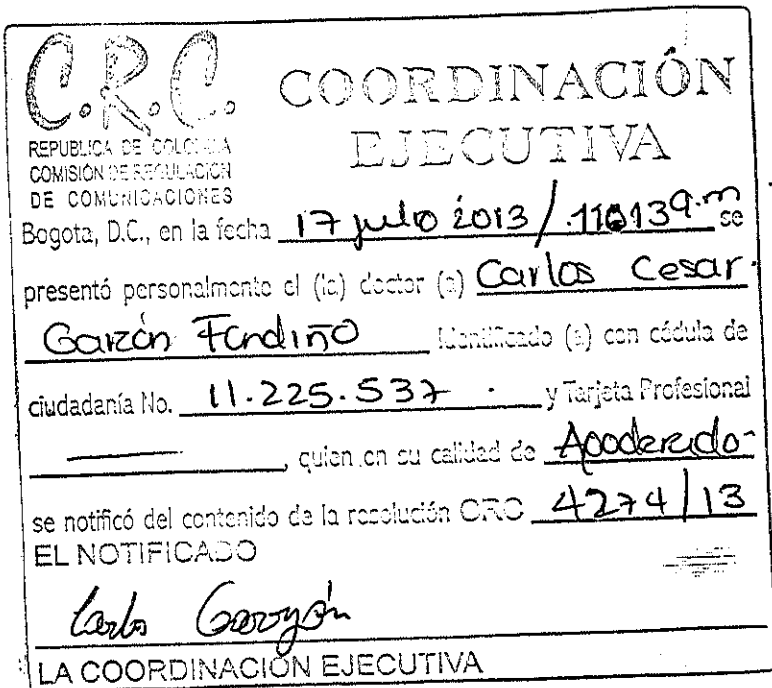 C.R.C.
COORDINACIÓN
EJECUTIVA
REPUBLICA DE COLOMBIA
COMISIÓN DE REGULACIÓN
DE COMUNICACIONES
Bogota, D.C., en la fecha 17 julio 2013 / 11:13 a.m se
presentó personalmente el (la) doctor (a) Carlos Cesar
Garzón Fandiño Identificado (a) con cédula de
ciudadanía No. 11.225.537 y Tarjeta Profesional
, quien en su calidad de Apoderado
se notificó del contenido de la resolución CRC 4274/13
EL NOTIFICADO
Carlos Garzón
LA COORDINACIÓN EJECUTIVA